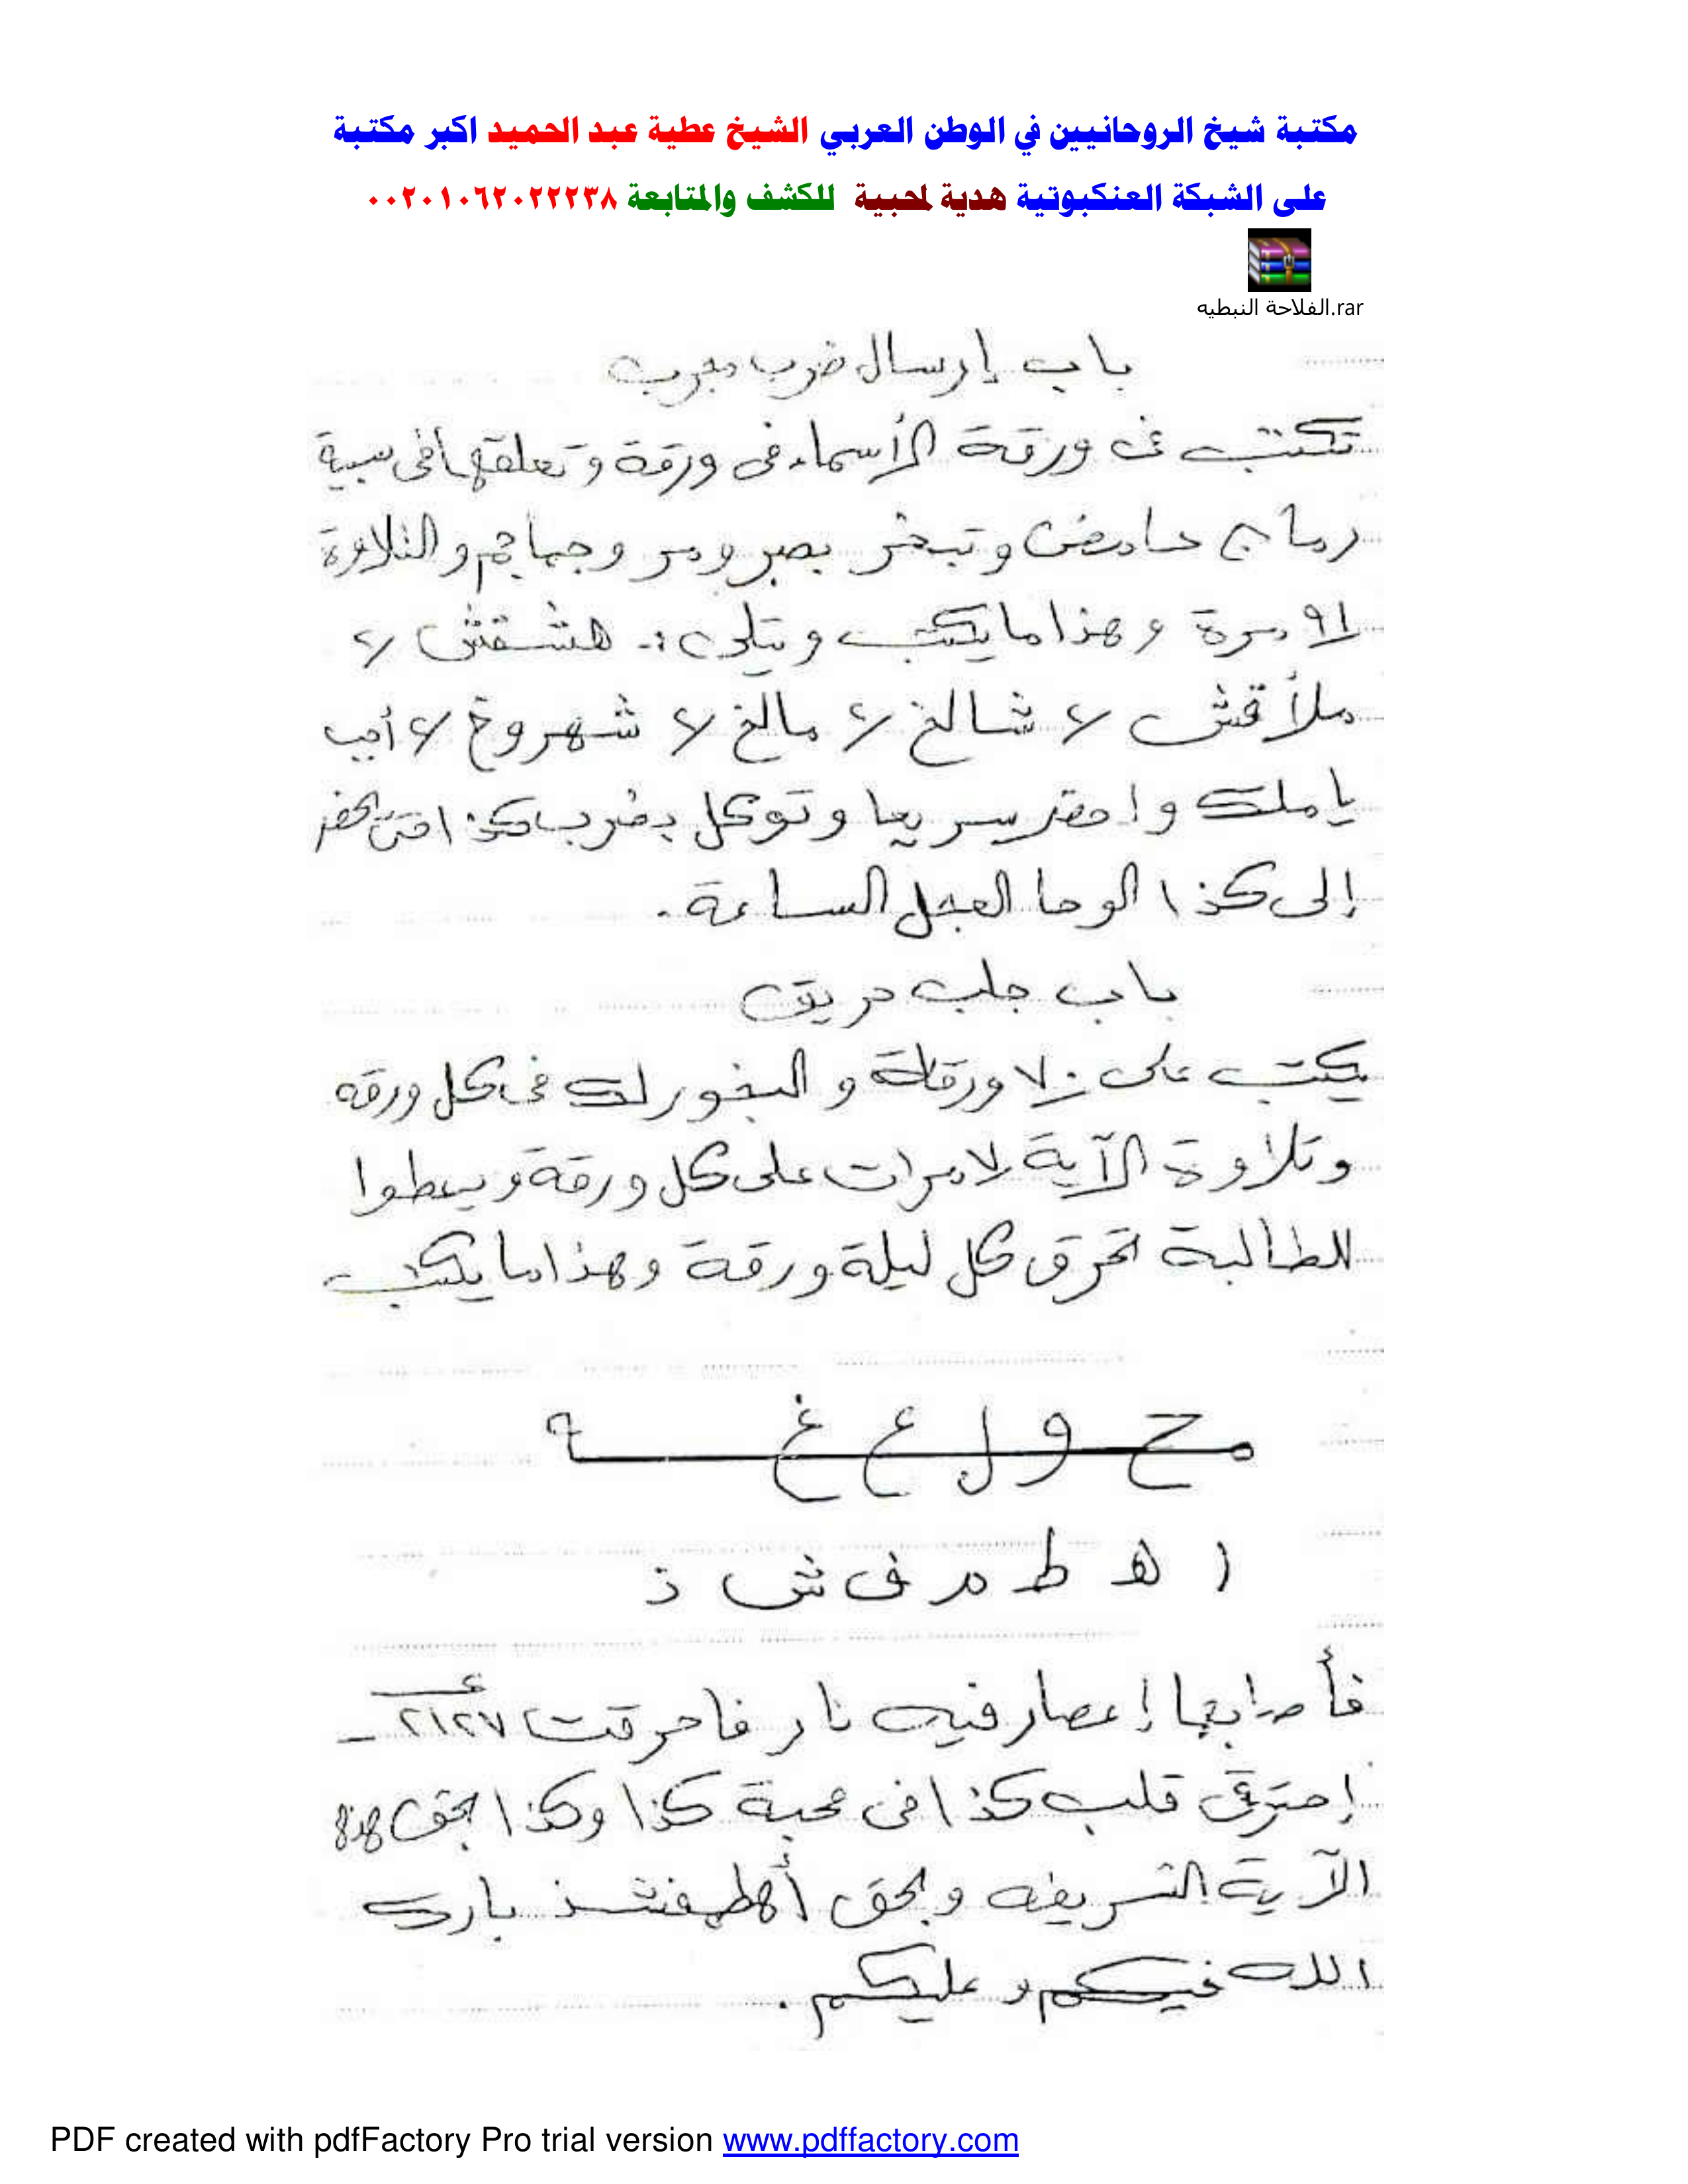 مكتبة شيخ الروحانيين في الوطن العربي الشيخ عطية عبد الحميد اكبر مكتبة
على الشبكة العنكبوتية هدية لمحبية للكشف والمتابعة ٠٠٢٠١٠٦٢٠٢٢٢٣٨
الفلاحة النبطيه.rar
باب إرسال ضرب مجرب
تكتب فى ورقة الأسماء فى ورقة وتعلقها فى سيبة
رمان حامض وتبخر بصبر ومر وجماجم والتلاوة
مرة وهذا ما يكتب ويتلى :- هشقش
ملأقش شالخ مالخ شهروخ أجب
يا ملك واحضر سريعا وتوكل بضرب كذا حتى يحضر
إلى كذا الوحا العجل الساعة .
باب جلب حريق
يكتب على ٧٠ ورقة والبخور لك فى كل ورقه
وتلاوة الآية ٧ مرات على كل ورقة ويعطوا
للطالبة تحرق كل ليلة ورقة وهذا ما يكتب
مـ ح و ل ع غ ـه
ا هـ ط م ف ش ذ
فأصابها إعصار فيه نار فاحرقت ٢١٢٧
إحترق قلب كذا فى محبة كذا وكذا بحق هذه
الآية الشريفه وبحق أهطمفشذ بارك
الله فيكم وعليكم .
PDF created with pdfFactory Pro trial version www.pdffactory.com